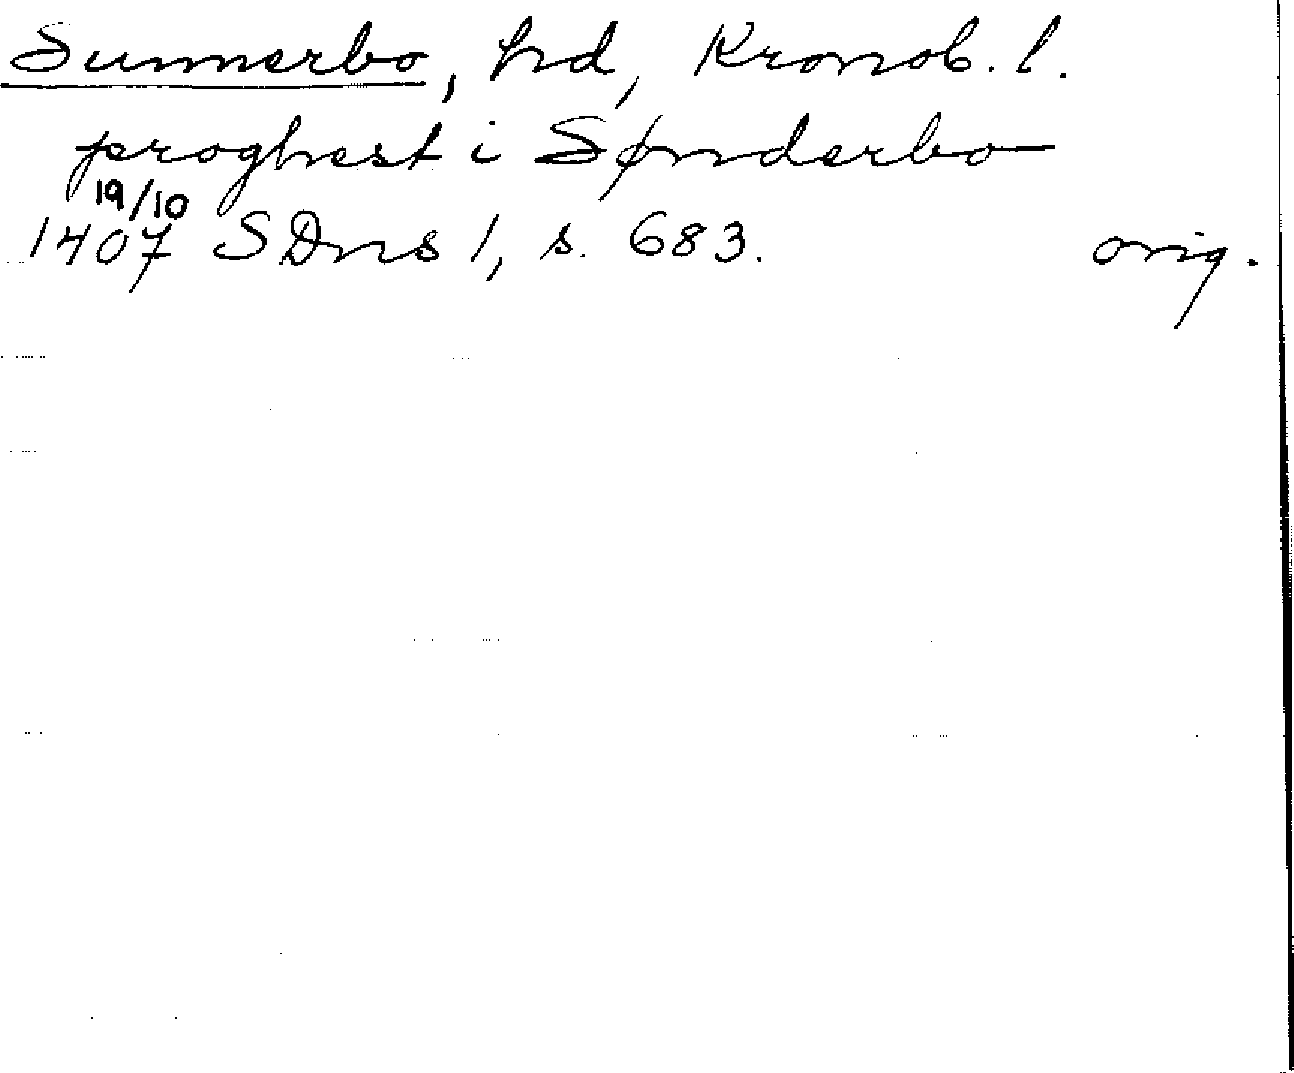 Sunnerbo, hd, Kronob. l.
proghest i Sønderbo
19/10
1407 SDns 1, s. 683. orig.